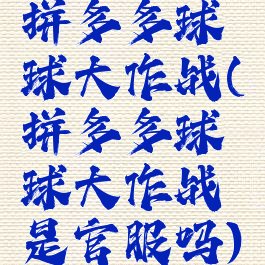 拼多多球
球大作战(
拼多多球
球大作战
是官服吗)